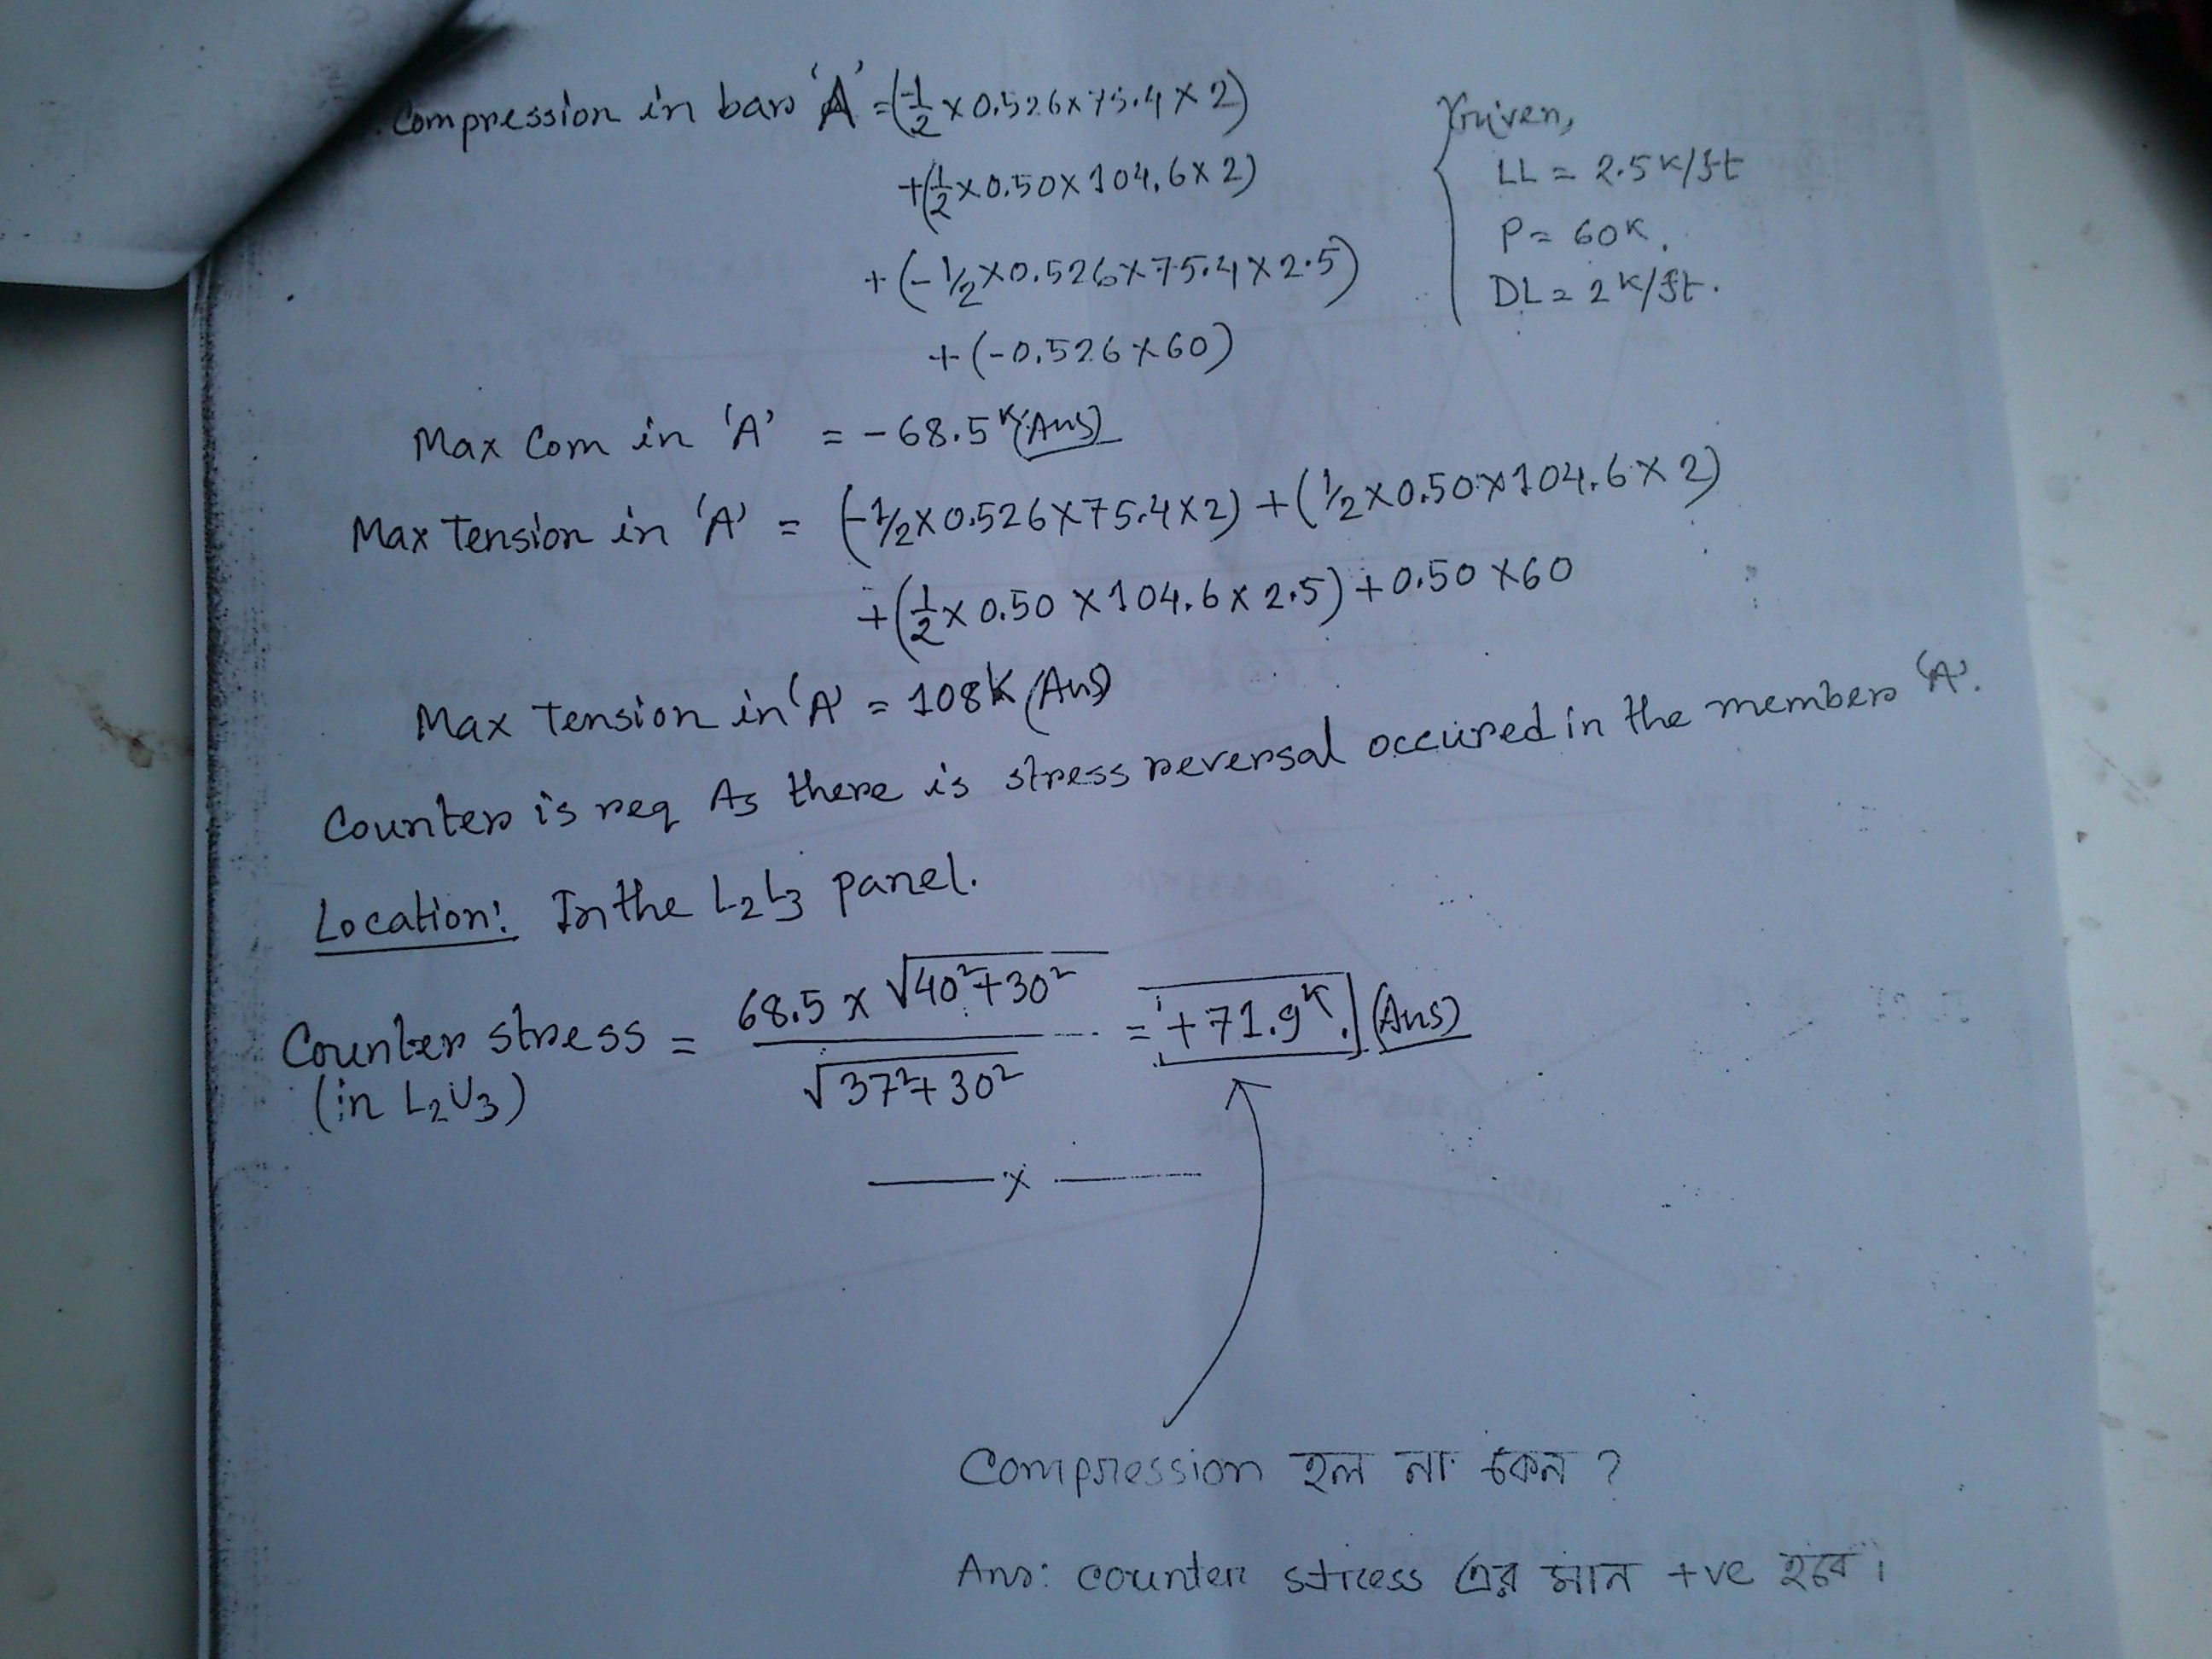 Compression in bar 'A' = (-1/2 × 0.526 × 75.4 × 2)
+(1/2 × 0.50 × 104.6 × 2)
+ (-1/2 × 0.526 × 75.4 × 2.5)
+ (-0.526 × 60)
Given,
LL = 2.5 K/ft
P = 60K.
DL = 2 K/ft.
Max Com in 'A' = - 68.5 K (Ans)
Max Tension in 'A' = (-1/2 × 0.526 × 75.4 × 2) + (1/2 × 0.50 × 104.6 × 2)
+ (1/2 × 0.50 × 104.6 × 2.5) + 0.50 × 60
Max Tension in 'A' = 108K (Ans)
Counter is req As there is stress reversal occured in the member 'A'.
Location: In the L2L3 panel.
Counter stress = 68.5 × √40²+30² / √37²+30² = +71.9K. (Ans)
(in L2U3)
—— x ——
Compression হল না কেন ?
Ans: counter stress এর মান +ve হবে।